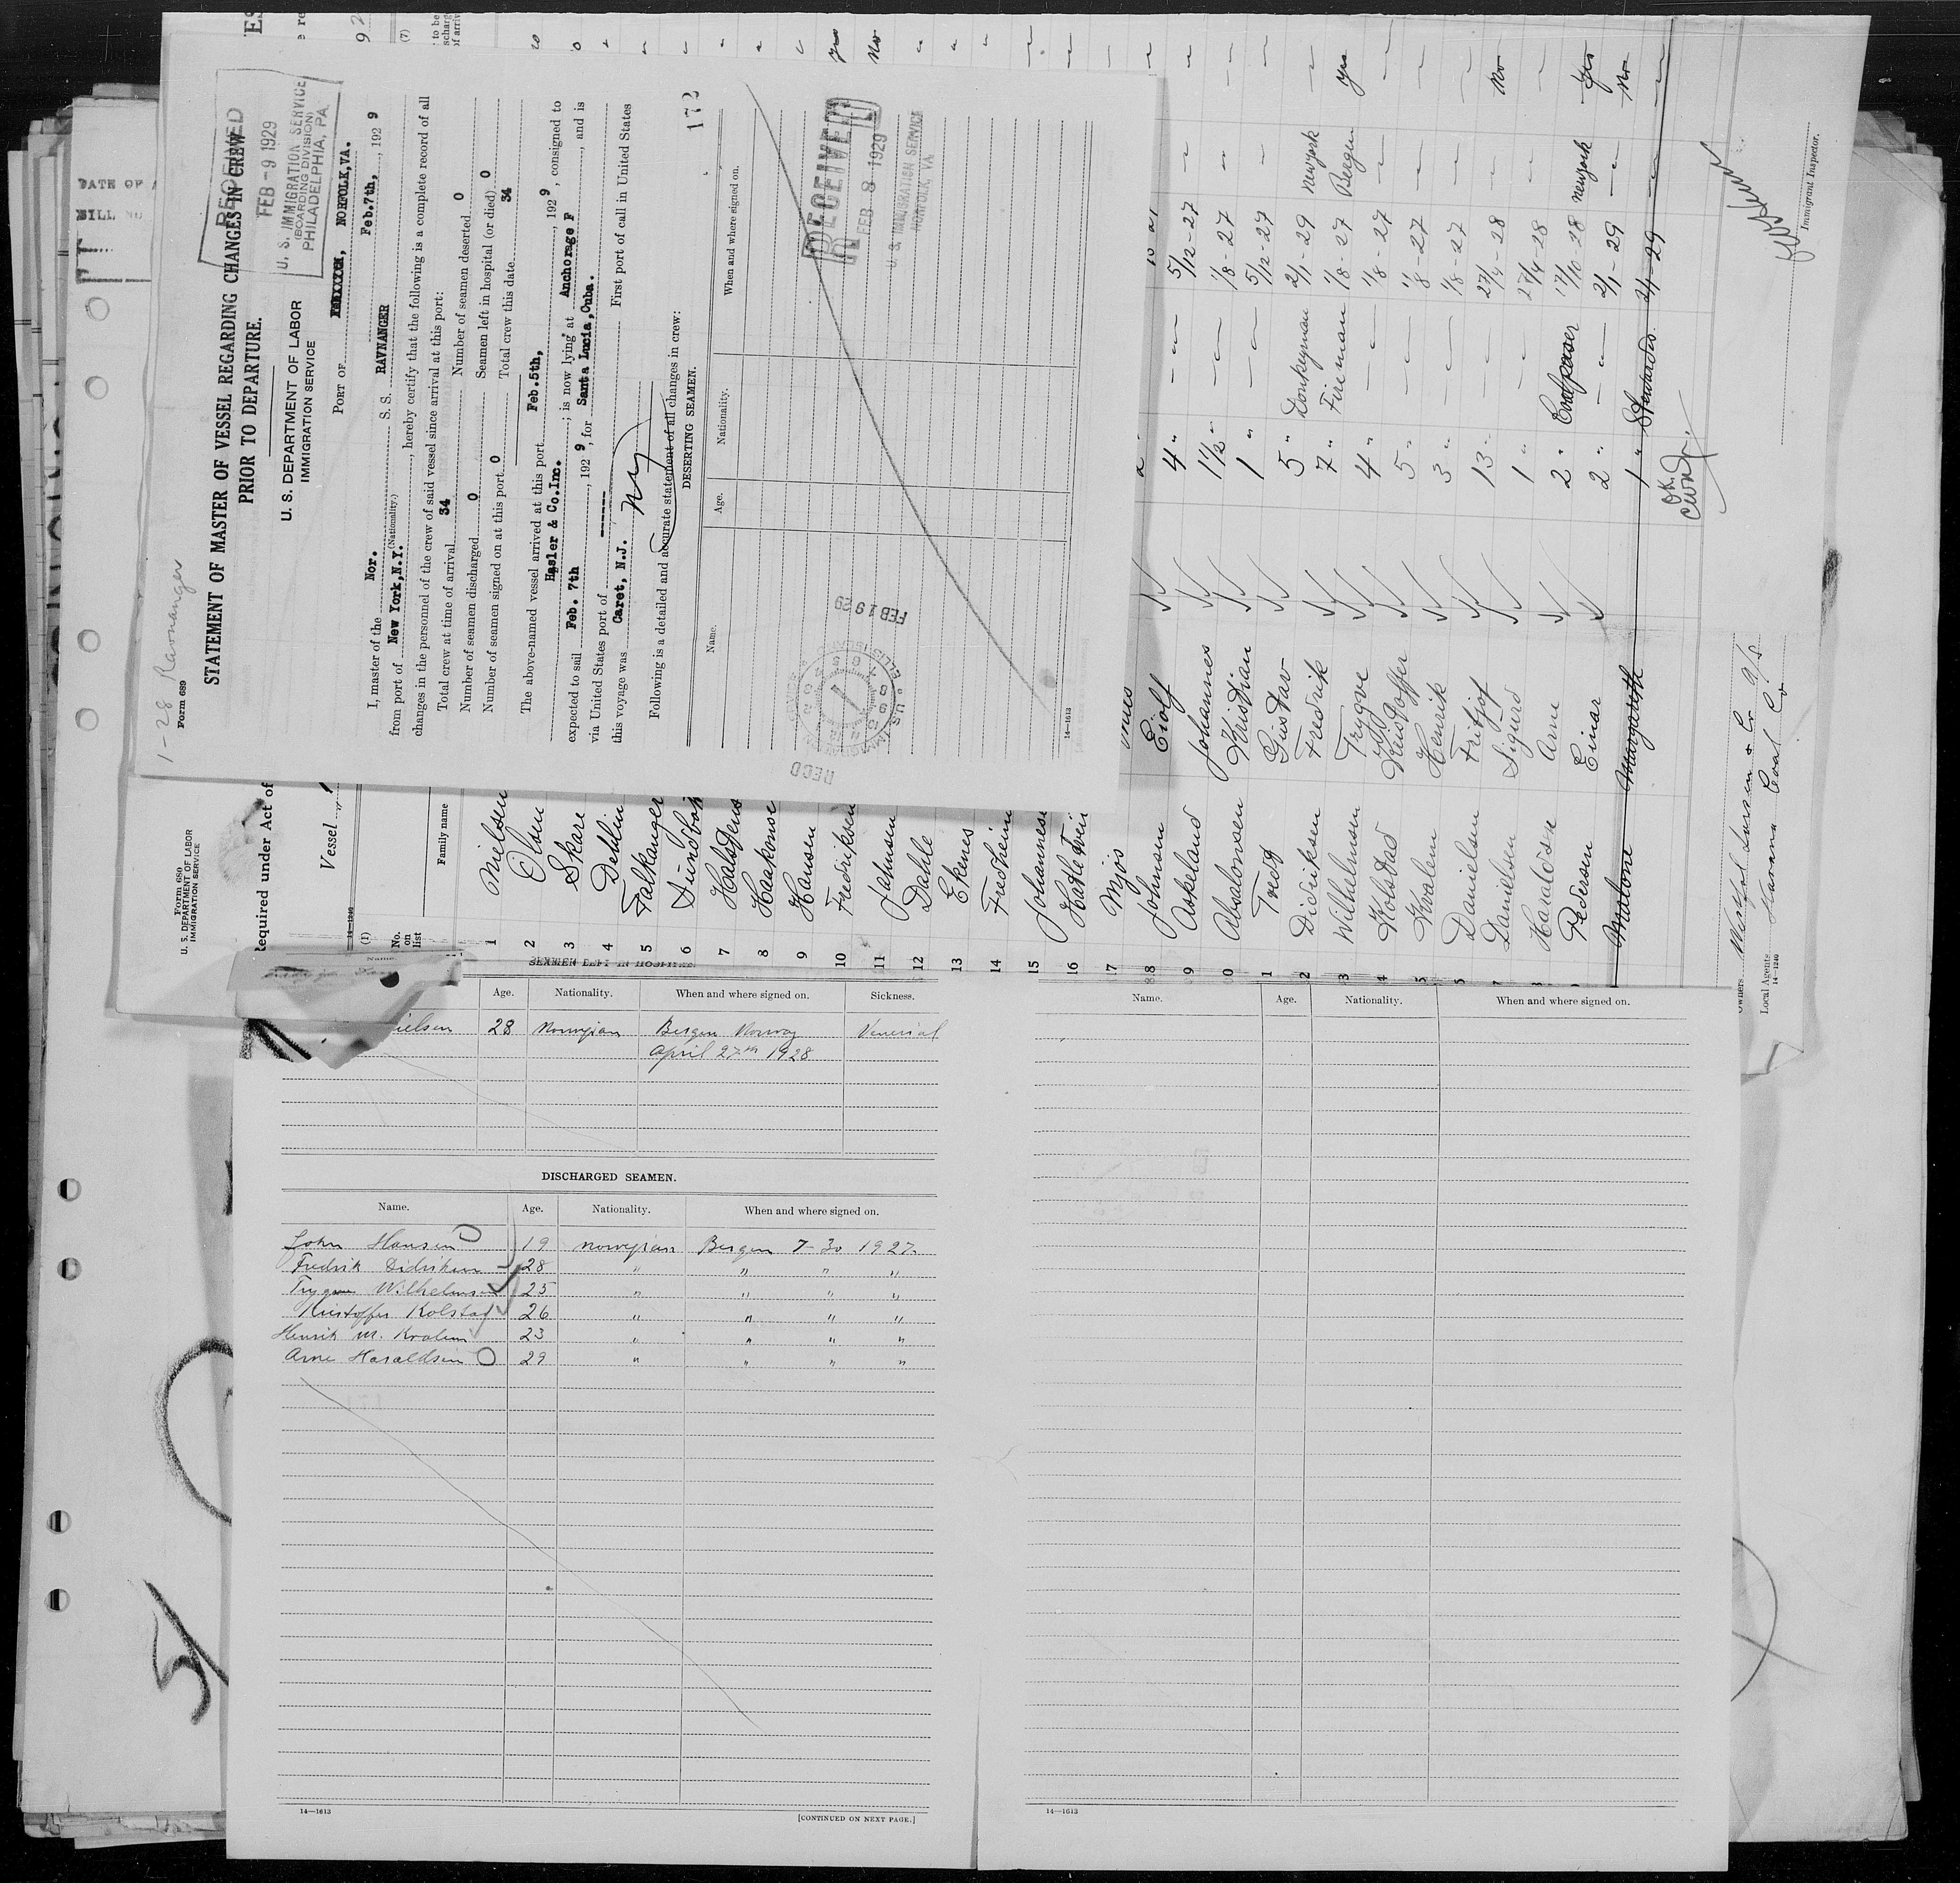 1-28 Ravnanger
Form 689
STATEMENT OF MASTER OF VESSEL REGARDING CHANGES IN CREW
PRIOR TO DEPARTURE.
U. S. DEPARTMENT OF LABOR
IMMIGRATION SERVICE
RECEIVED
FEB - 9 1929
U. S. IMMIGRATION SERVICE
(BOARDING DIVISION)
PHILADELPHIA, PA.
PORT OF NORFOLK, VA.
Feb.7th, , 192 9
I, master of the Nor. S. S. RAVNANGER
(Nationality.)
from port of New York,N.Y. , hereby certify that the following is a complete record of all
changes in the personnel of the crew of said vessel since arrival at this port:
Total crew at time of arrival 34 Number of seamen deserted 0
Number of seamen discharged 0 Seamen left in hospital (or died) 0
Number of seamen signed on at this port 0 Total crew this date 34
The above-named vessel arrived at this port Feb.5th, , 192 9 , consigned to
Hasler & Co.Inc. ; is now lying at Anchorage F , and is
expected to sail Feb. 7th , 192 9 , for Santa Lucia,Cuba.
via United States port of ------ First port of call in United States
this voyage was Caret, N.J. NY
Following is a detailed and accurate statement of all changes in crew:
172
DESERTING SEAMEN.
Name. Age. Nationality. When and where signed on.
RECEIVED
FEB 8 1929
U. S. IMMIGRATION SERVICE
NORFOLK, VA.
FEB 19 29
RECD
14—1613
Form 680
U. S. DEPARTMENT OF LABOR
IMMIGRATION SERVICE
Required under Act of
Vessel
14—1240
(1)
No. on list
Family name
(7)
1 Nielsen
2 Olsen
3 Skare
4 Dethlin
5 Falkanger
6 Sundbøh
7
8 Haakonse
9 Hansen
10 Fredriksen
11 Jahnsen
12 Dahle
13 Ekenes
14 Fredheim
15 Johannese
16
17 Mjøs
18 Johnsen Eiolf 4 " 5/12-27
9 Askeland Johannes 1½ " 1/8-27
0 Absalonsen Kristian 1 " 5/12-27
1 Tredt Gustav 5 " Donkeyman 2/1-29 Newyork
2 Diedriksen Fredrik 7 " Fireman 1/8-27 Bergen yes
3 Wilhelmsen Trygve 4 " 1/8-27
4 Kolstad Kristoffer 5 " 1/8-27
5 Kvalem Henrik 3 " 1/8-27
Danielsen Fritjof 13 " 27/4-28 No
Danielsen Sigurd 1 " 27/4-28
Haraldsen Arne 2 " Coalpasser 17/10-28 Newyork yes
Pedersen Einar 2 " 2/1-29 No
Malone Margareth 1 " 2/1-29
OK
Owners
Local Agents Havana Coal Co
14—1240
Immigrant Inspector.
SEAMEN LEFT IN HOSPITAL.
Name. Age. Nationality. When and where signed on. Sickness.
ielsen 28 Norwegian Bergen Norway Venerial
April 27th 1928
DISCHARGED SEAMEN.
Name. Age. Nationality. When and where signed on.
John Hansen 19 norwegian Bergen 7-30 1927.
Fredrik Didriksen 28 " " " "
Trygve Wilhelmsen 25 " " " "
Kristoffer Kolstad 26 " " " "
Henrik M. Kvalem 23 " " " "
Arne Haraldsen 29 " " " "
14—1613
[CONTINUED ON NEXT PAGE.]
Name. Age. Nationality. When and where signed on.
14—1613